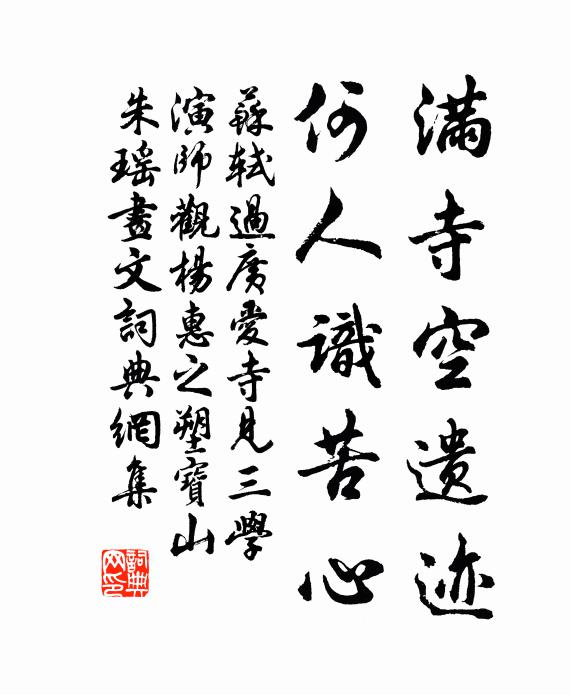 滿寺空遺迹
何人識苦心
蘇軾過廣愛寺見三學
演師觀楊惠之塑寶山
朱瑶畫文詞典網集
詞典网印